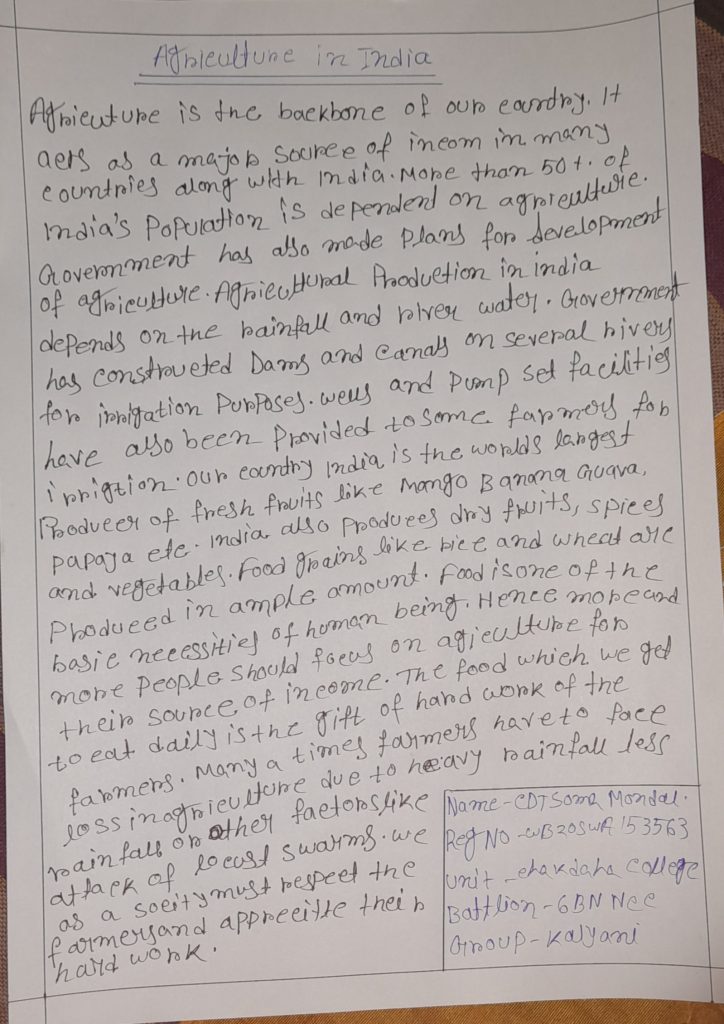 Agriculture in India
Agricuture is the backbone of our country. It
acts as a major source of incom in many
countries along with India. More than 50%. of
India's Population is dependent on agriculture.
Government has also made plans for development
of agriculture. Agricultural Production in india
depends on the rainfall and river water. Government
has constructed Dams and Canals on several rivers
for irrigation Purposes. wells and Pump set facilities
have also been Provided to some farmers for
irrigtion. our country India is the worlds largest
Producer of fresh fruits like Mango Banana Guava,
papaya etc. India also produces dry fruits, spices
and vegetables. Food grains like rice and wheat are
Produced in ample amount. Food is one of the
basic necessities of human being. Hence more and
more People should focus on agiculture for
their source of income. The food which we get
to eat daily is the gift of hard work of the
farmers. Many a times farmers have to face
loss in agriculture due to heavy rainfall less
rainfall or other factors like
attack of locust swarms. we
as a socity must respect the
farmers and apprecitte their
hard work.
Name - CDT Soma Mondal.
Reg No - WB20SWA153563
Unit - chakdaha College
Battlion - 6BN Ncc
Group - Kalyani